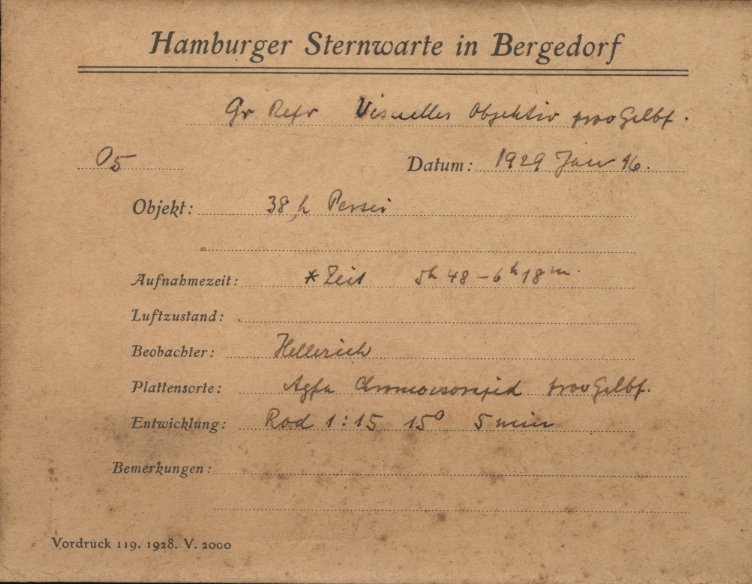 Hamburger Sternwarte in Bergedorf
Gr Refr Visuelles Objektiv prov Gelbf.
O5 Datum: 1929 Jan 16.
Objekt: 38 h Persei
Aufnahmezeit: *Zeit 5h 48 – 6h 18m.
Luftzustand:
Beobachter: Hellerich
Plattensorte: Agfa prov Gelbf.
Entwicklung: Rod 1:15 15° 5 min
Bemerkungen:
Vordruck 119. 1928. V. 2000